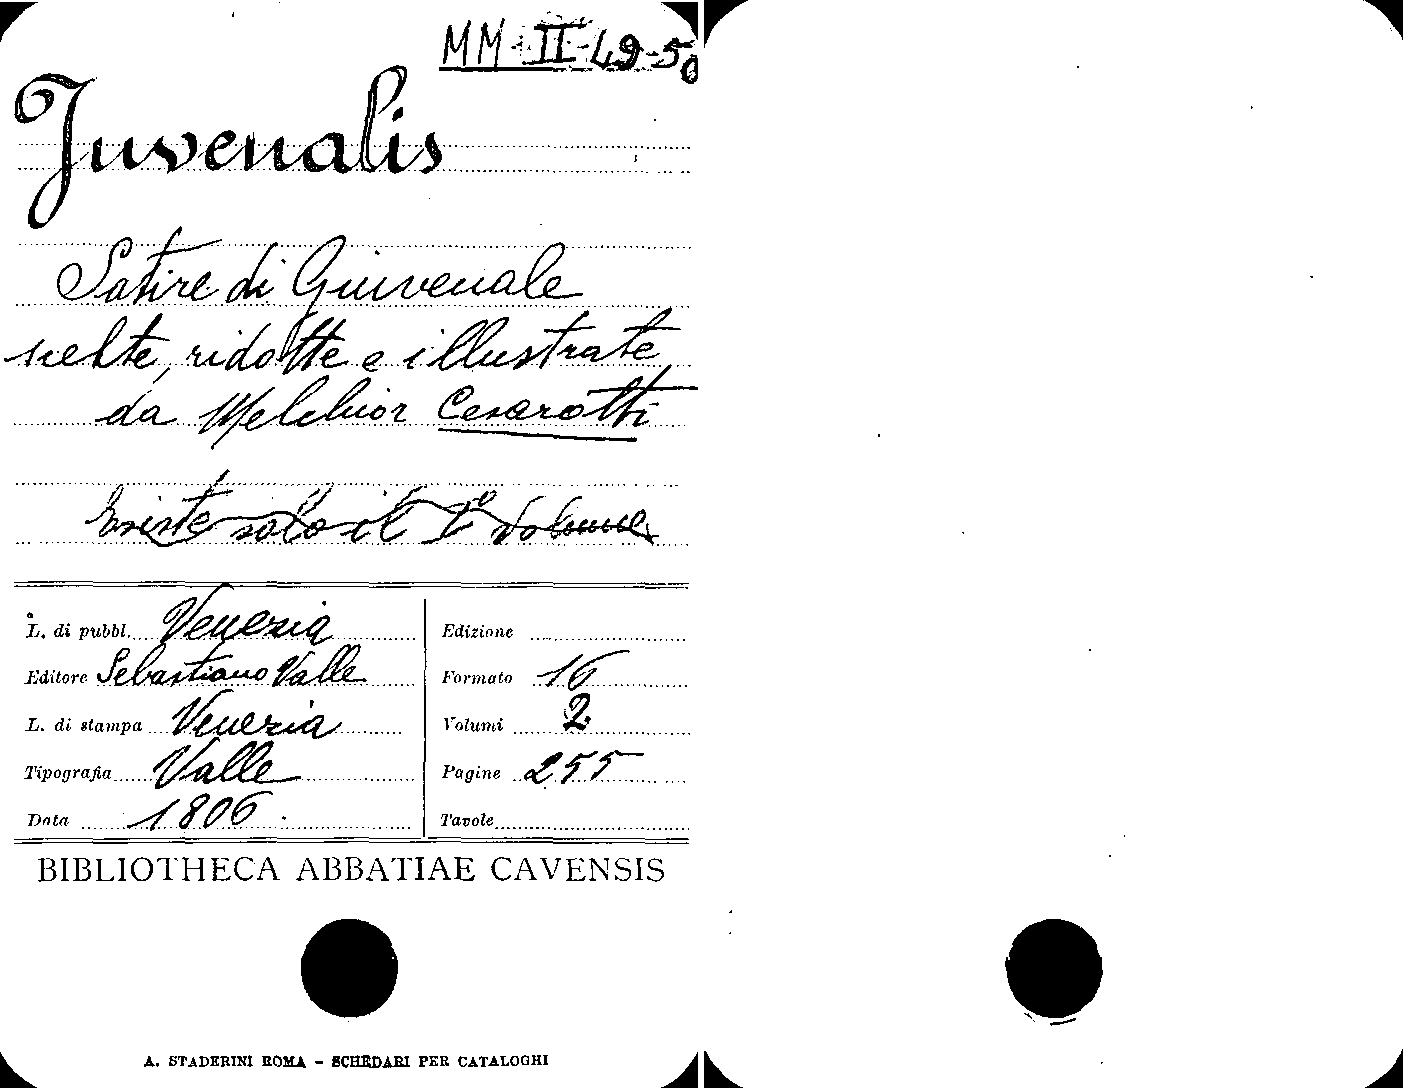 MM-II-49-50
Juvenalis
Satire di Giuvenale
scelte, ridotte e illustrate
da Melchior Cesarotti
Esiste solo il 1º volume
L. di pubbl. Venezia
Editore Sebastiano Valle
L. di stampa Venezia
Tipografia Valle
Data 1806.
Edizione
Formato 16
Volumi 2
Pagine 255
Tavole
BIBLIOTHECA ABBATIAE CAVENSIS
A. STADERINI ROMA - SCHEDARI PER CATALOGHI